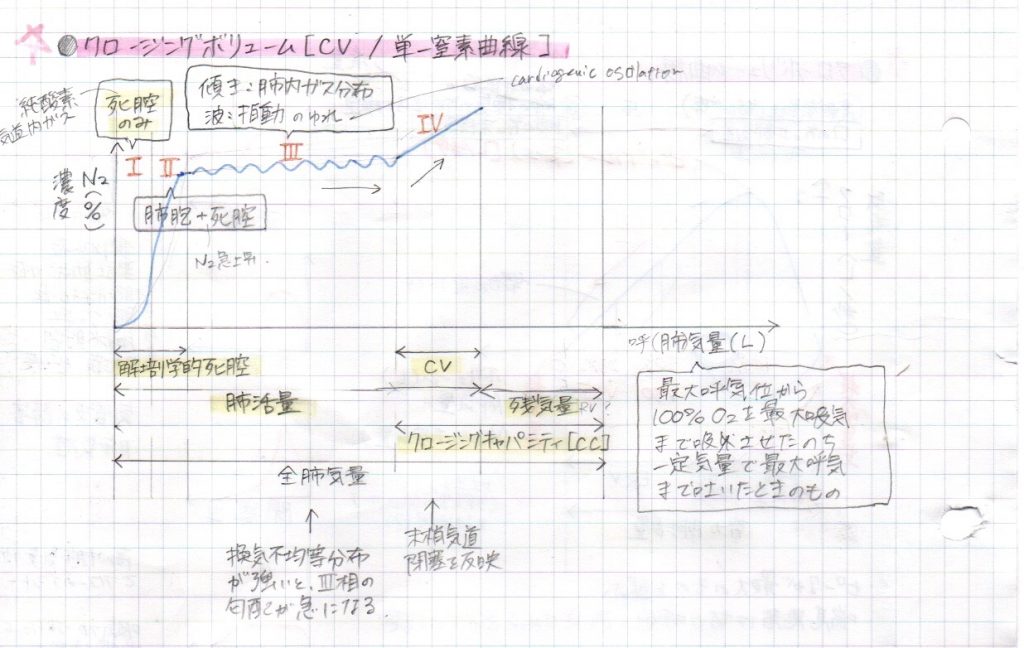 ●クロージングボリューム[CV / 単一窒素曲線]
純酸素
気道内ガス
死腔
のみ
傾き:肺内ガス分布
波:拍動のゆれ
cardiogenic osilation
I
II
III
IV
N2
濃度
(%)
肺胞+死腔
N2急上昇.
呼(肺)気量(L)
解剖学的死腔
CV
肺活量
残気量RV
クロージングキャパシティ[CC]
全肺気量
最大呼気位から
100% O2を最大吸気
まで吸入させたのち
一定気量で最大呼気
まで吐いたときのもの
換気不均等分布
が強いと、III相の
勾配が急になる
末梢気道
閉塞を反映